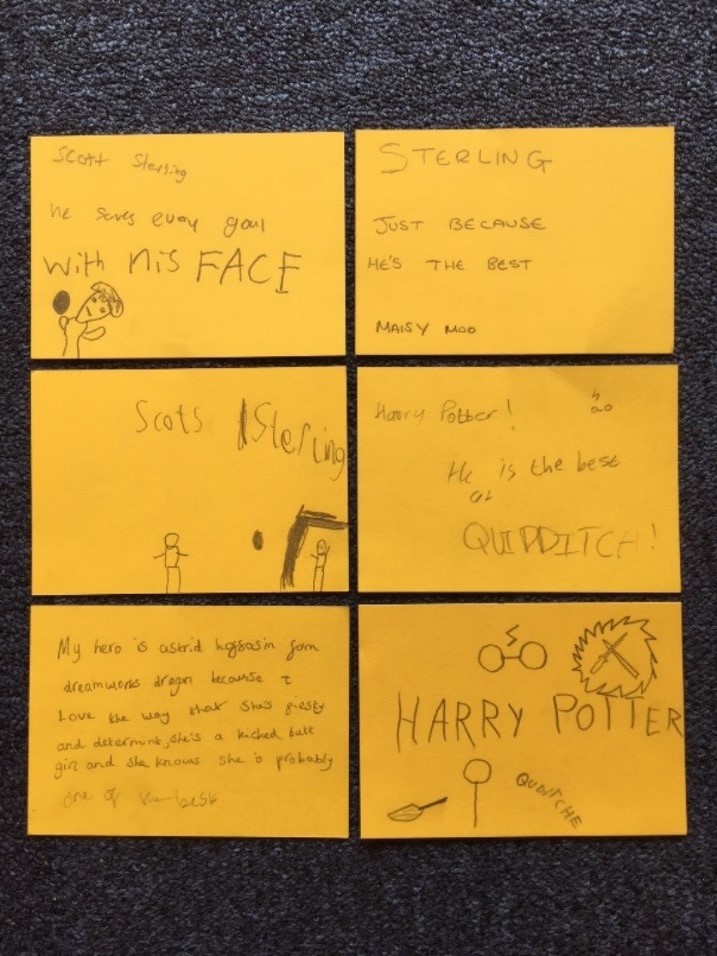 Scott Sterling
he saves every goal
with his FACE
STERLING
JUST BECAUSE
HE'S THE BEST
MAISY MOO
Scots Stering
Harry Potter!
He is the best
at
QUIDDITCH!
My hero is astrid hoffasin from
dreamworks dragon because I
Love the way that she's fiesty
and determint, she's a kicked butt
girl and she knows she is probably
one of the best
HARRY POTTER
QUDITCHE